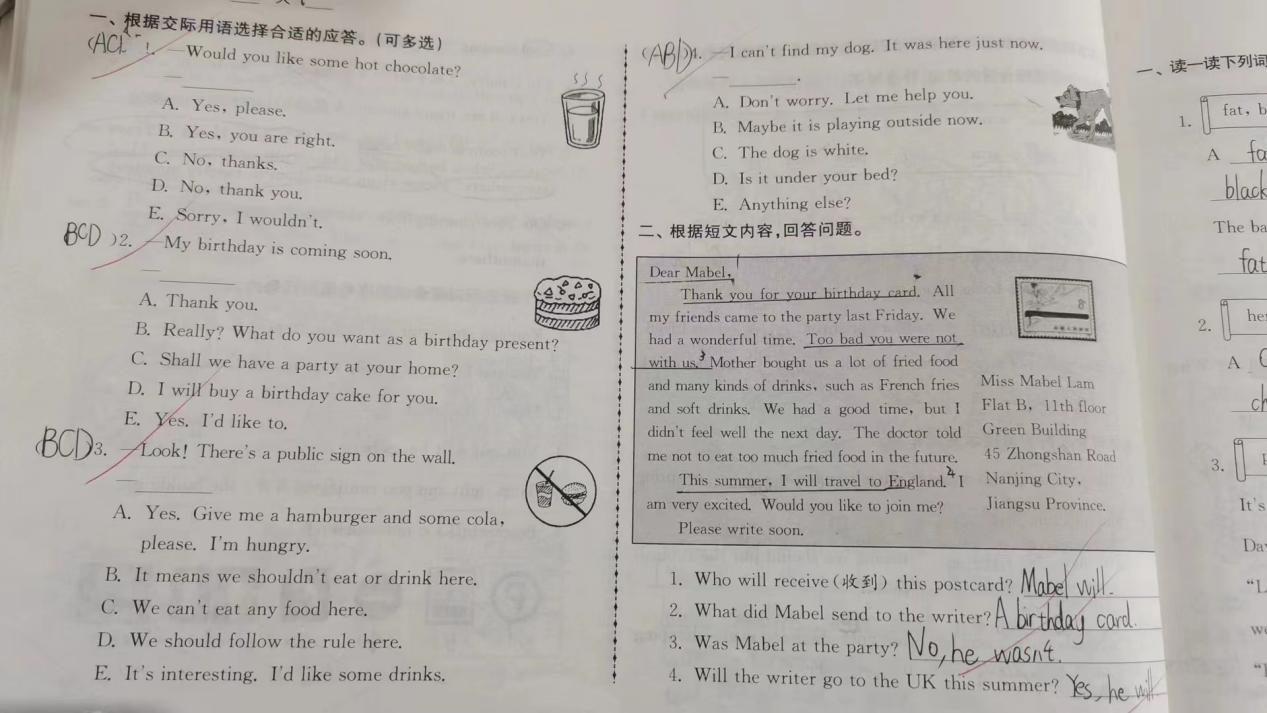 一、根据交际用语选择合适的应答。(可多选)
(AC 1. —Would you like some hot chocolate?
—
A. Yes, please.
B. Yes, you are right.
C. No, thanks.
D. No, thank you.
E. Sorry, I wouldn't.
BCD )2. —My birthday is coming soon.
—
A. Thank you.
B. Really? What do you want as a birthday present?
C. Shall we have a party at your home?
D. I will buy a birthday cake for you.
E. Yes. I'd like to.
BCD 3. —Look! There's a public sign on the wall.
—
A. Yes. Give me a hamburger and some cola,
please. I'm hungry.
B. It means we shouldn't eat or drink here.
C. We can't eat any food here.
D. We should follow the rule here.
E. It's interesting. I'd like some drinks.
(ABD)4. —I can't find my dog. It was here just now.
— .
A. Don't worry. Let me help you.
B. Maybe it is playing outside now.
C. The dog is white.
D. Is it under your bed?
E. Anything else?
二、根据短文内容,回答问题。
Dear Mabel, 1
Thank you for your birthday card. All
my friends came to the party last Friday. We
had a wonderful time. Too bad you were not
with us. 3 Mother bought us a lot of fried food
and many kinds of drinks, such as French fries
and soft drinks. We had a good time, but I
didn't feel well the next day. The doctor told
me not to eat too much fried food in the future.
This summer, I will travel to England. 4 I
am very excited. Would you like to join me?
Please write soon.
8
Miss Mabel Lam
Flat B, 11th floor
Green Building
45 Zhongshan Road
Nanjing City,
Jiangsu Province.
1. Who will receive(收到) this postcard? Mabel will.
2. What did Mabel send to the writer? A birthday card.
3. Was Mabel at the party? No, he wasn't.
4. Will the writer go to the UK this summer? Yes, he will
一、读一读下列词
1. fat, b
A fa
black
The ba
fat
2. he
A
ch
3.
It's
Da
"L
we